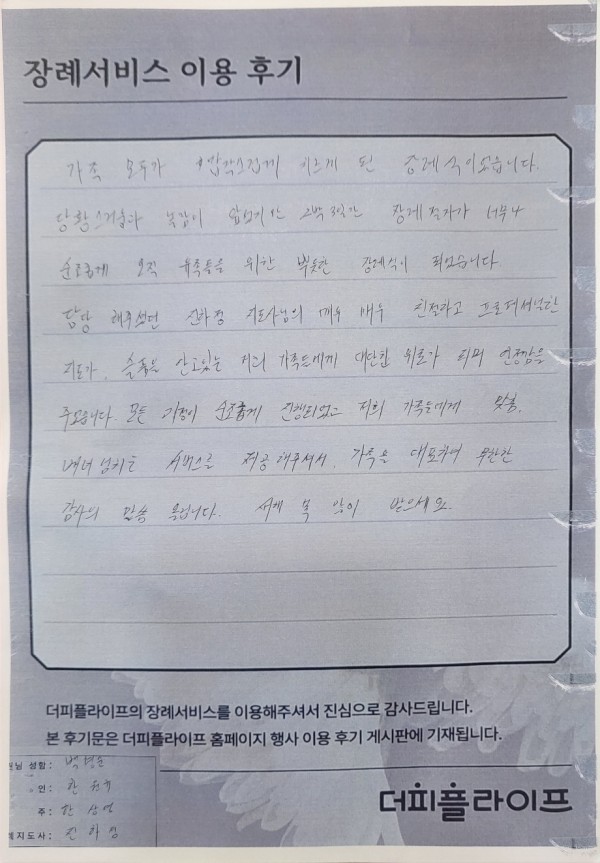 장례서비스 이용 후기
가족 모두가 갑작스럽게 이르게 된 장례식이였습니다.
당황스러움과 눅잡이 앞섰지만 2박3일간 장례 절차가 너무나
순조롭게 오직 유족들을 위한 뿌듯한 장례식이 되었습니다
담당 해주셨던 진하정 지도사님의 매우 매우 친절하고 프로페셔널한
지도가, 슬픔을 안고있는 저희 가족들에게 대단한 위로가 되며 안정감을
주었습니다. 모든 과정이 순조롭게 진행되었고 저희 가족들에게 맞춤,
서비스를 제공해주셔서, 가족을 대표하여 무한한
감사의 말씀 올립니다. 새해 복 많이 받으세요.
더피플라이프의 장례서비스를 이용해주셔서 진심으로 감사드립니다.
본 후기문은 더피플라이프 홈페이지 행사 이용 후기 게시판에 기재됩니다.
성함:
인:
주: 한상영
지도사: 진하정
더피플라이프